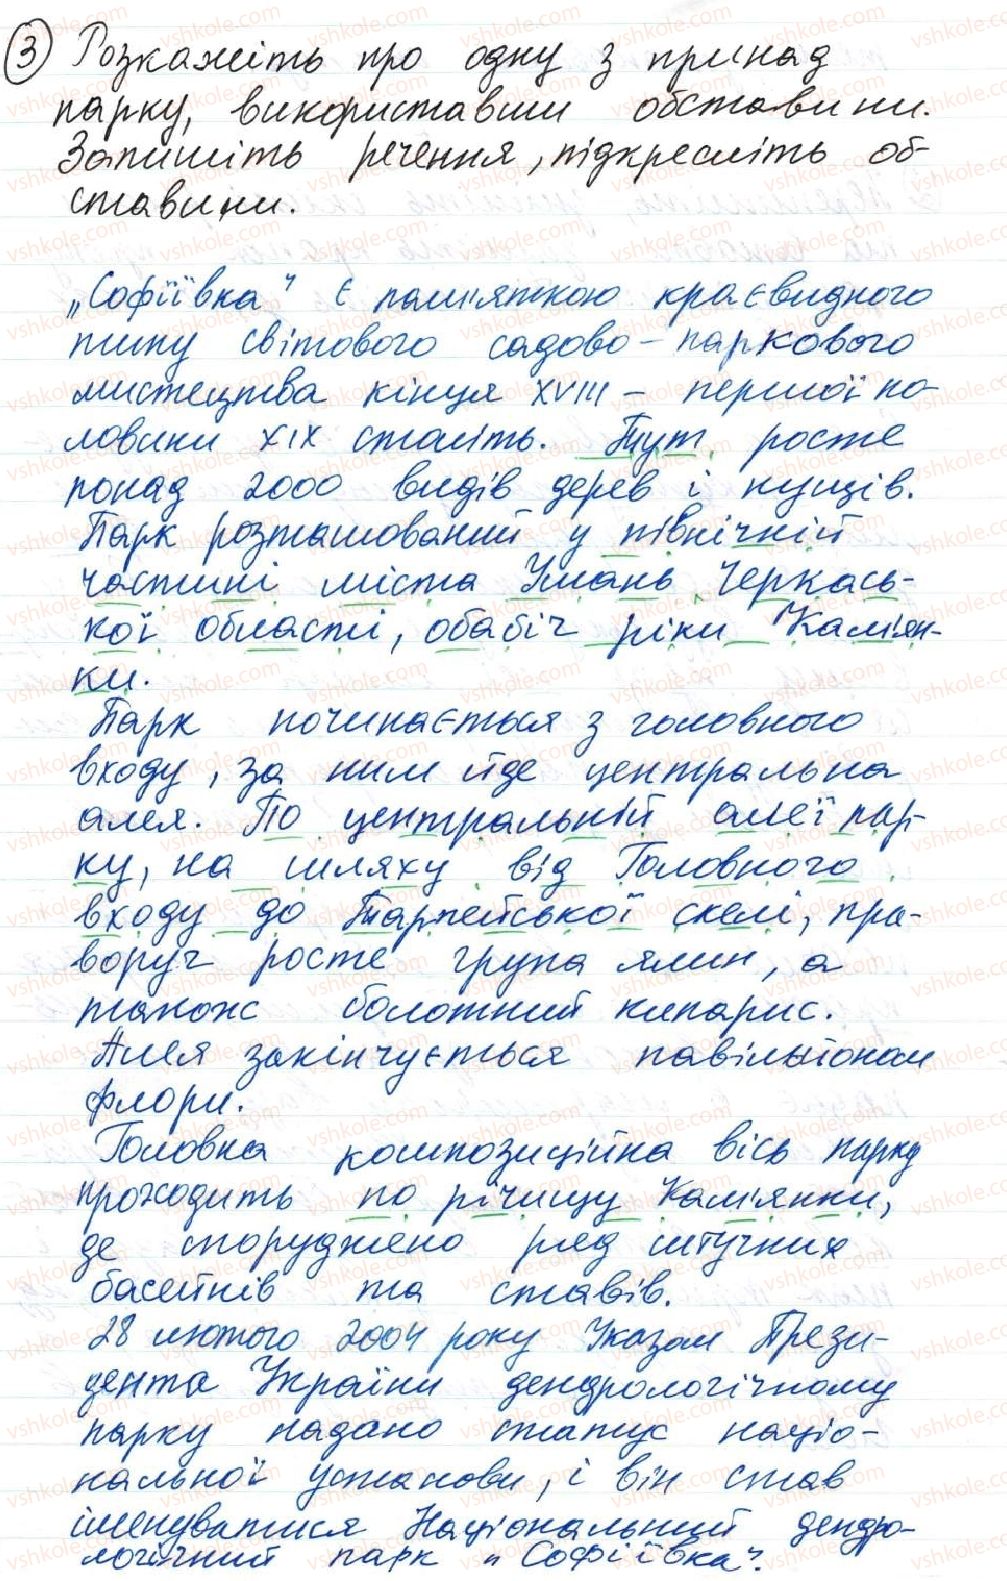 ③ Розкажіть про одну з принад
парку, використавши обставини.
Запишіть речення, підкресліть об-
ставини.
„Софіївка" є пам'яткою краєвидного
типу світового садово-паркового
мистецтва кінця XVIII – першої по-
ловини XIX століть. Тут росте
понад 2000 видів дерев і кущів.
Парк розташований у північній
частині міста Умань Черкась-
кої області, обабіч ріки Кам'ян-
ки.
Парк починається з головного
входу, за ним йде центральна
алея. По центральній алеї пар-
ку, на шляху від Головного
входу до Тарпейської скелі, пра-
воруч росте група ялин, а
також болотний кипарис.
Алея закінчується павільйоном
Флори.
Головна композиційна вісь парку
проходить по річищу Кам'янки,
де споруджено ряд штучних
басейнів та ставів.
28 лютого 2004 року Указом Прези-
дента України дендрологічному
парку надано статус націо-
нальної установи, і він став
іменуватися Національний дендро-
логічний парк „Софіївка".